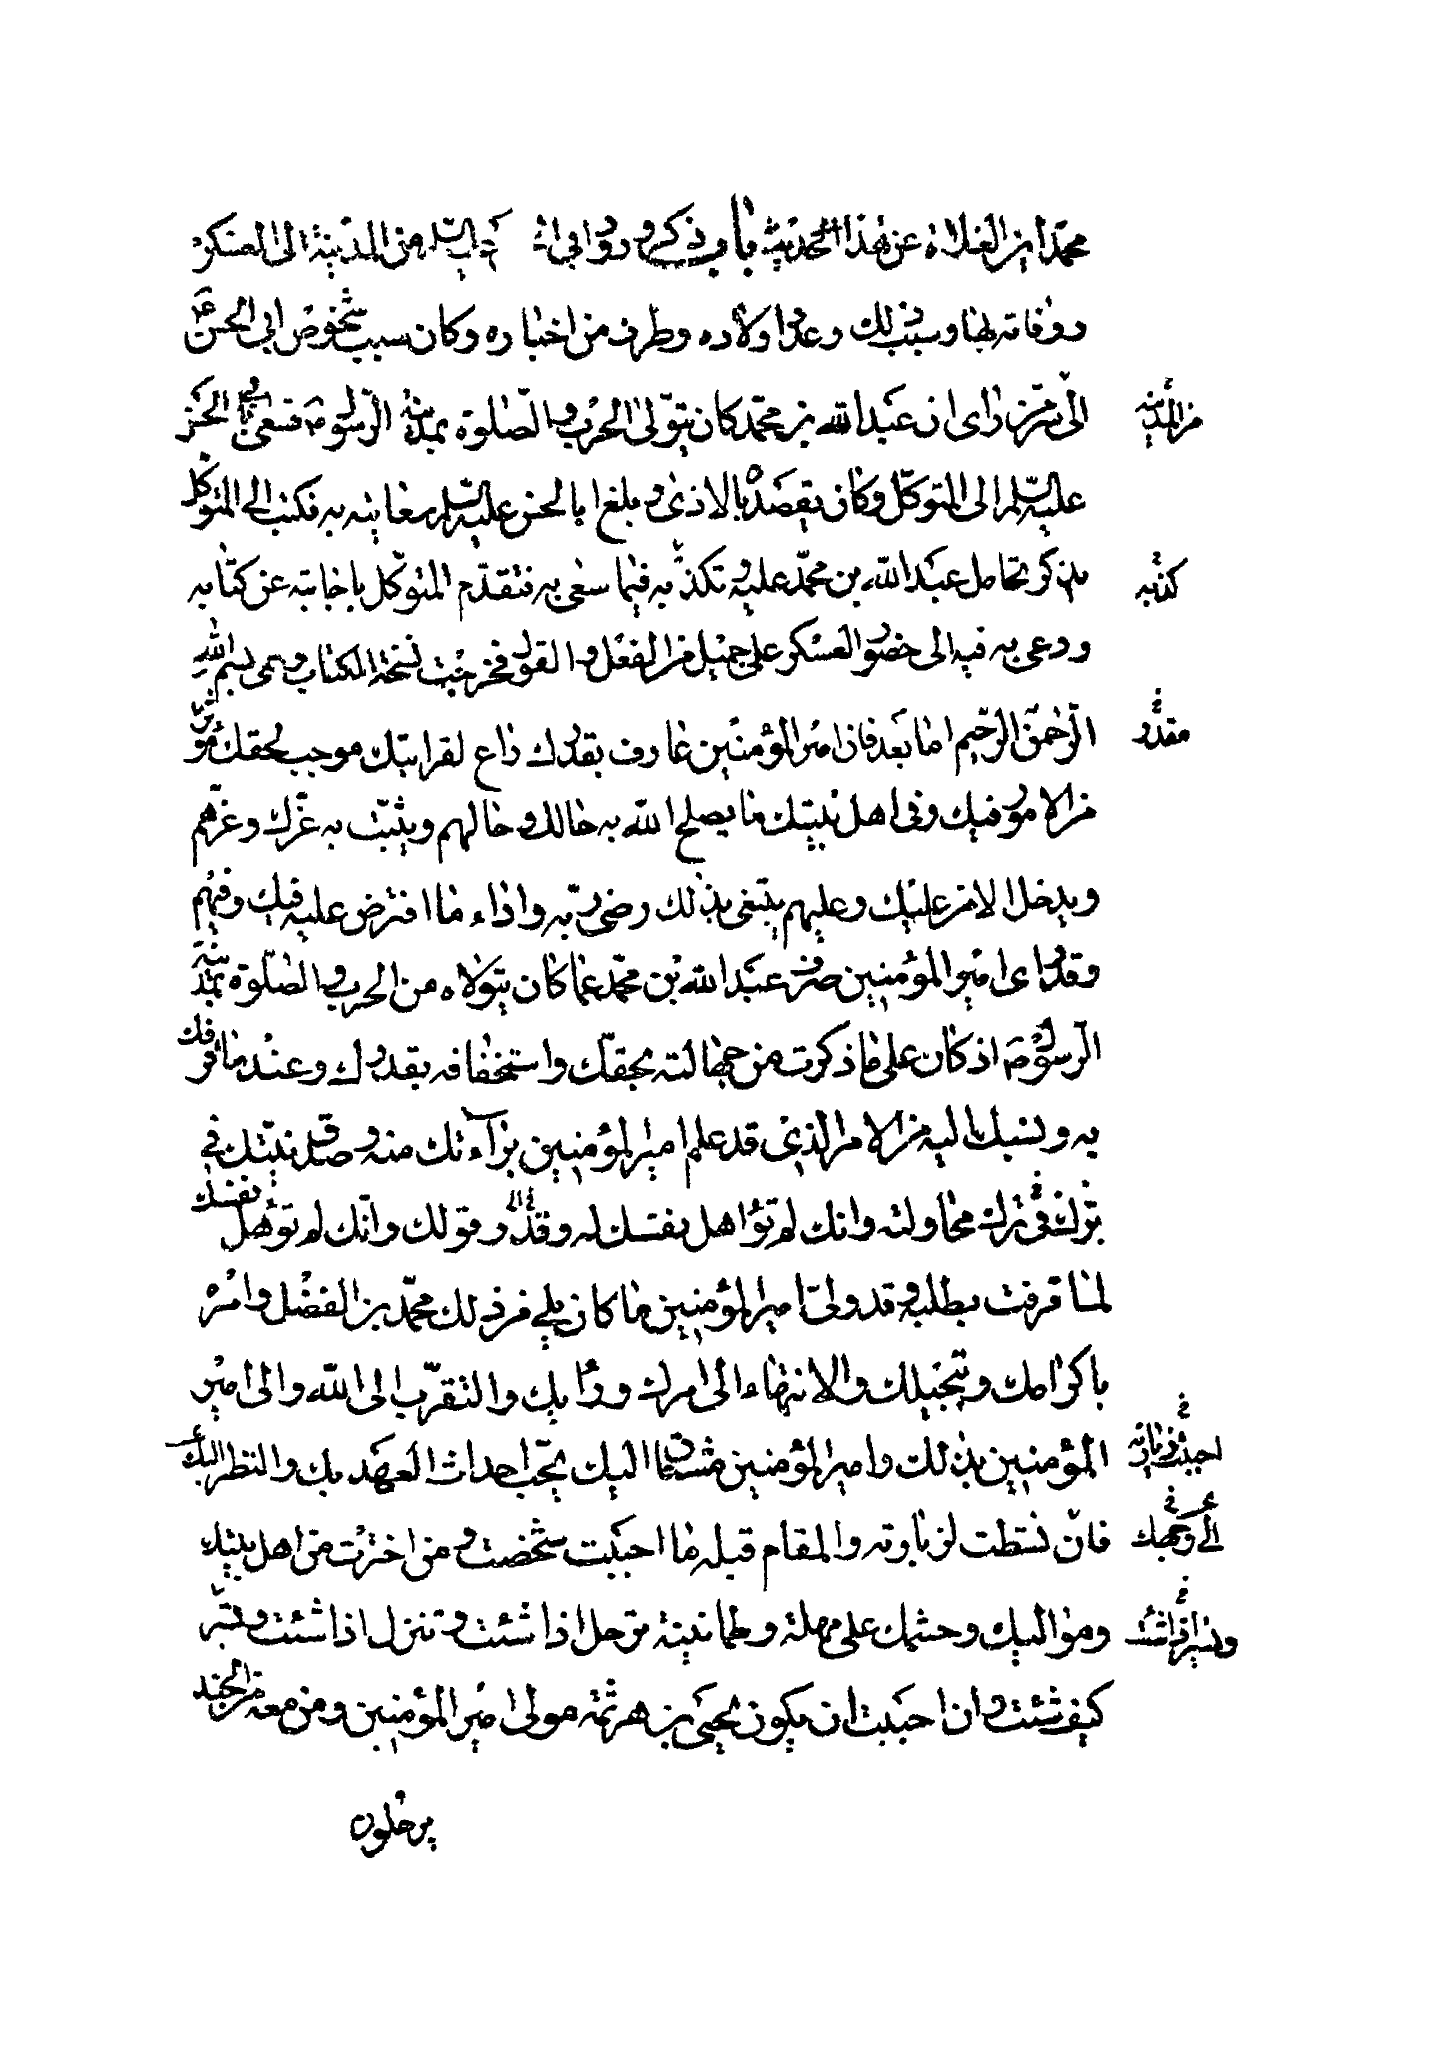 محمد ابن الفلاء عن هذا الحديث باب ذكر ورود ابى الحسن عليه السلم من المدينة الى العسكر
ووفاته بها وسبب ذلك وعدد اولاده وطرف من اخباره وكان سبب شخوص ابى الحسن ع
الى سر من راى ان عبد الله بن محمد كان يتولى الحرب والصلوة بمدينة الرسول ص فسعى بابى الحسن
من المدينة
عليه السلم الى المتوكل وكان يقصده بالاذى وبلغ ابا الحسن عليه السلم سعايته به فكتب الى المتوكل
يذكر تحامل عبد الله بن محمد عليه وتكذبه فيما سعى به فتقدم المتوكل باجابته عن كتابه
كذبه
ودعى به فيه الى حضور العسكر على جميل من الفعل والقول فخرجت نسخة الكتاب وهى بسم الله
الرحمن الرحيم اما بعد فان امير المؤمنين عارف بقدرك راع لقرابتك موجب لحقك مؤثر
مقدر
من الامور فيك وفى اهل بيتك ما يصلح الله به حالك وحالهم ويثبت به عزك وعزهم
ويدخل الامن عليك وعليهم يبتغى بذلك رضى ربه واداء ما افترض عليه فيك وفيهم
وقد راى امير المؤمنين صرف عبد الله بن محمد عما كان يتولاه من الحرب والصلوة بمدينة
الرسول ص اذ كان على ما ذكرت من جهالته بحقك واستخفافه بقدرك وعند ما قرفك
به ونسبك اليه من الامر الذى قد علم امير المؤمنين براءتك منه وصدق نيتك فى
برك فى ترك محاولته وانك لم تؤاهل نفسك له وقولك وانك لم تؤهل نفسك
لما قرفت بطلبه وقد ولى امير المؤمنين ما كان يلى من ذلك محمد بن الفضل وامره
باكرامك وتبجيلك والانتهاء الى امرك ورأيك والتقرب الى الله والى امير
المؤمنين بذلك وامير المؤمنين مشتاق اليك يحب احداث العهد بك والنظر اليك
احببت زيارته
فان نشطت لزيارته والمقام قبله ما احببت شخصت ومن اخترت من اهل بيتك
الى وجهك
ومواليك وحشمك على مهلة وطمانينة ترحل اذا شئت وتنزل اذا شئت وتسير
وتسير اذا شئت
كيف شئت وان احببت ان يكون يحيى بن هرثمة مولى امير المؤمنين ومن معه من الجند
يرحلون